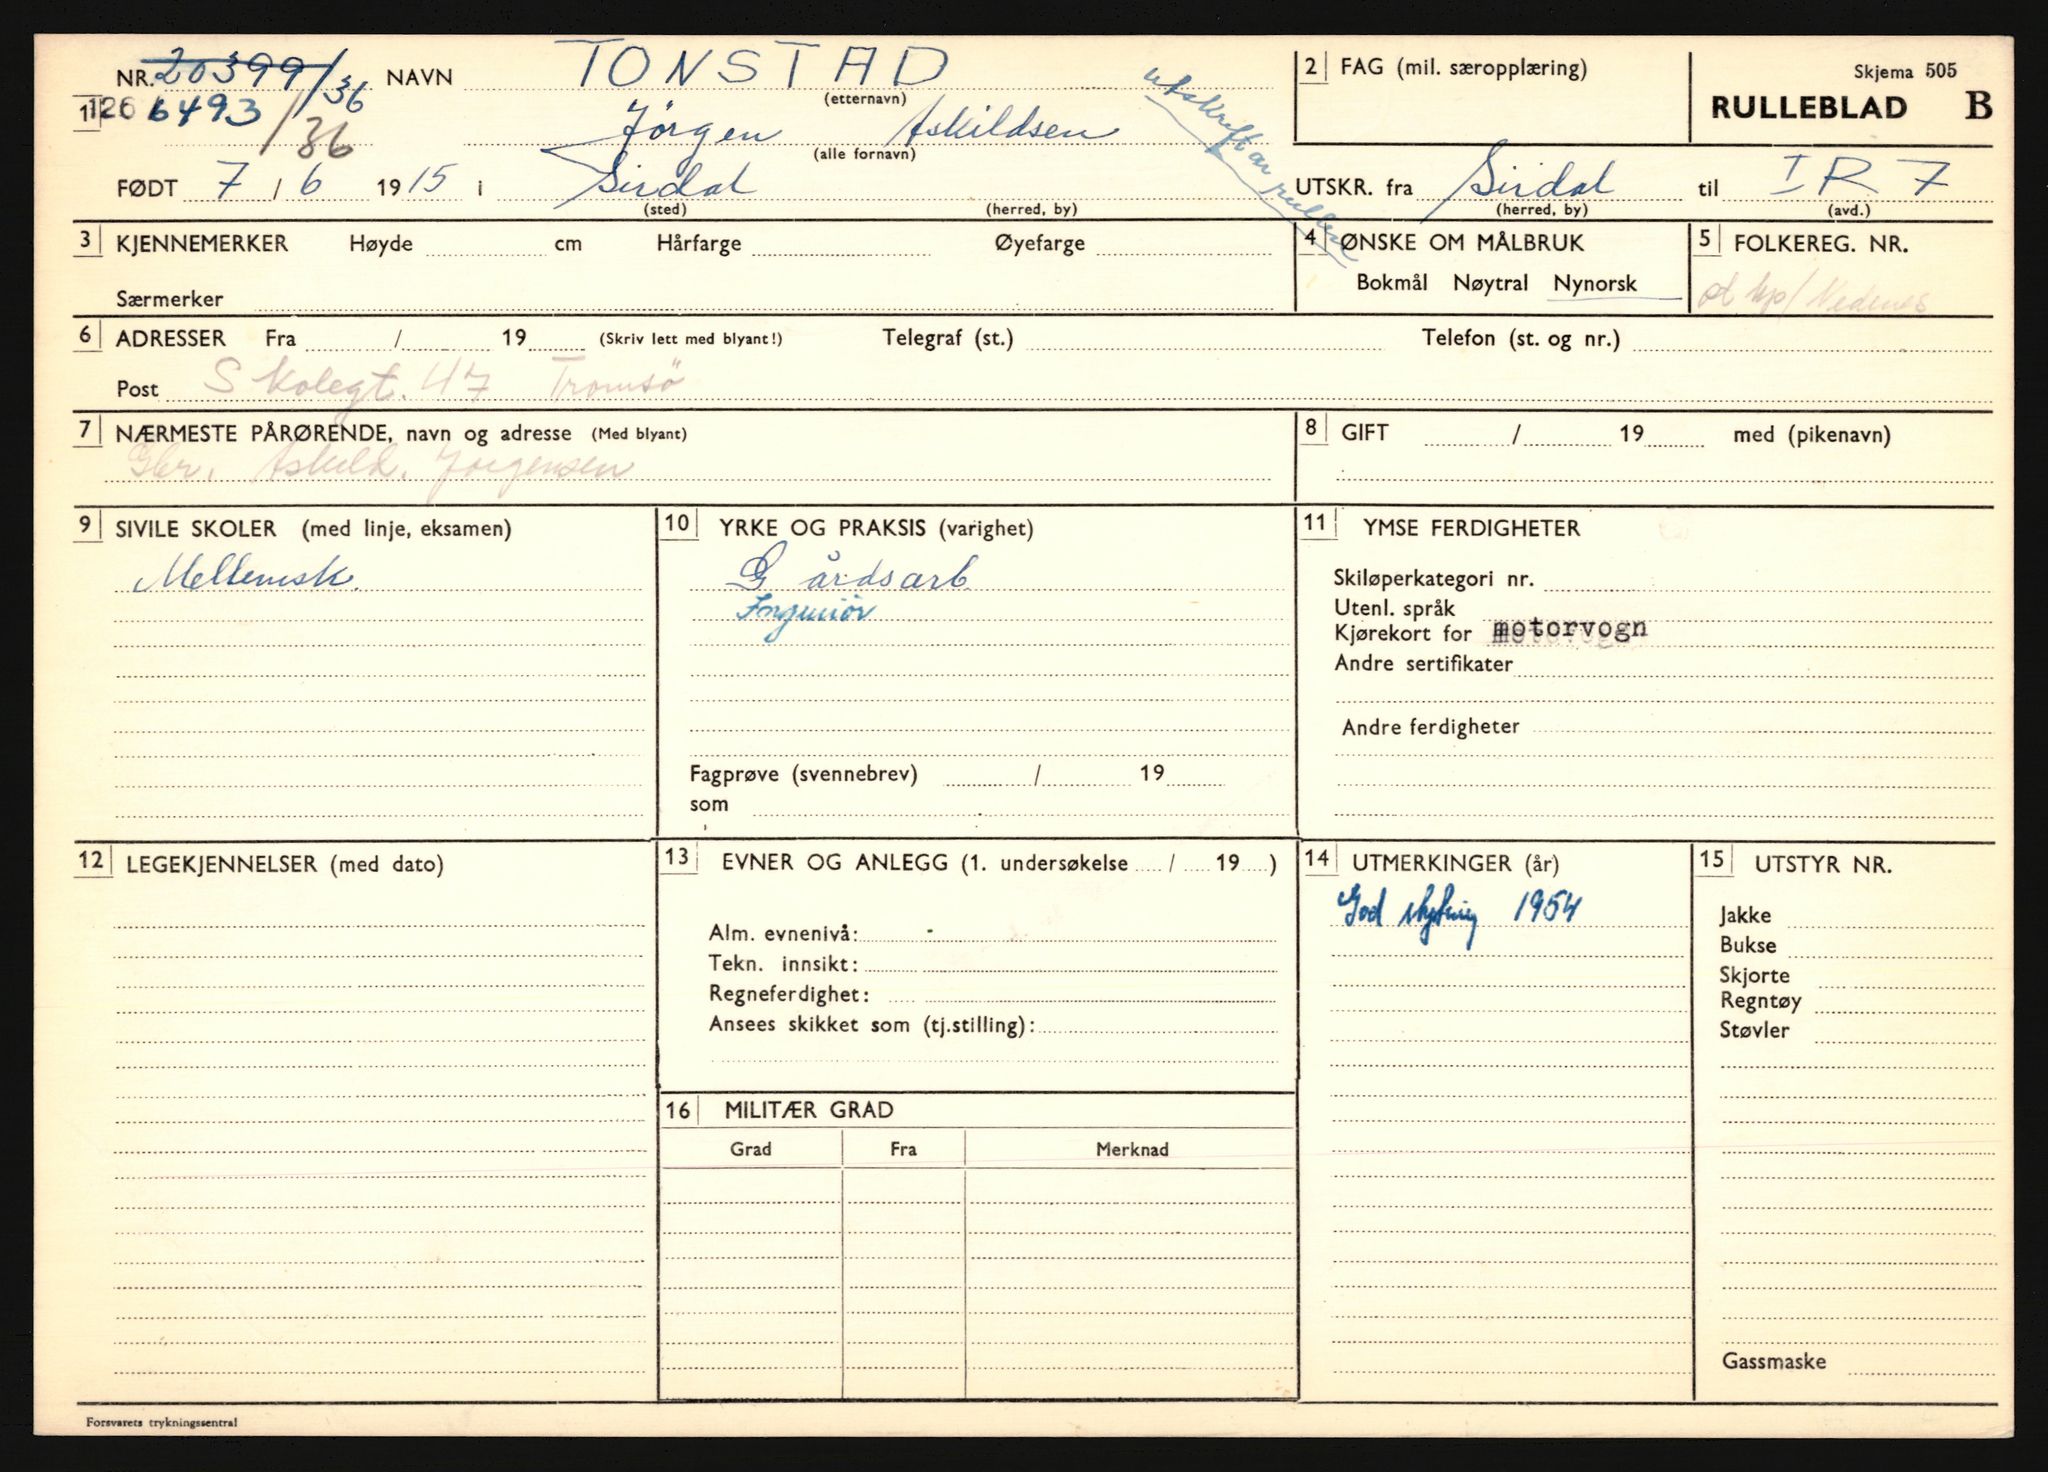 NR. 20399/36 NAVN TONSTAD
(etternavn)
1 126 6493/36 Jörgen Askildsen
(alle fornavn)
FØDT 7 / 6 1915 i Sirdal
(sted) (herred, by)
utskrift av rullen
2 FAG (mil. særopplæring)
Skjema 505
RULLEBLAD B
UTSKR. fra Sirdal til IR 7
(herred, by) (avd.)
3 KJENNEMERKER Høyde cm Hårfarge Øyefarge
Særmerker
4 ØNSKE OM MÅLBRUK
Bokmål Nøytral Nynorsk
5 FOLKEREG. NR.
6 ADRESSER Fra / 19 (Skriv lett med blyant!) Telegraf (st.) Telefon (st. og nr.)
Post Skolegt. 47 Tromsö
7 NÆRMESTE PÅRØRENDE, navn og adresse (Med blyant)
Gbr. Askild. Jörgensen
8 GIFT / 19 med (pikenavn)
9 SIVILE SKOLER (med linje, eksamen)
Mellemsk.
10 YRKE OG PRAKSIS (varighet)
Gårdsarb
Ingeniör
Fagprøve (svennebrev) / 19
som
11 YMSE FERDIGHETER
Skiløperkategori nr.
Utenl. språk
Kjørekort for motorvogn
Andre sertifikater
Andre ferdigheter
12 LEGEKJENNELSER (med dato)
13 EVNER OG ANLEGG (1. undersøkelse / 19 )
Alm. evnenivå:
Tekn. innsikt:
Regneferdighet:
Ansees skikket som (tj.stilling):
14 UTMERKINGER (år)
God skytning 1954
15 UTSTYR NR.
Jakke
Bukse
Skjorte
Regntøy
Støvler
Gassmaske
16 MILITÆR GRAD
Grad Fra Merknad
Forsvarets trykningssentral